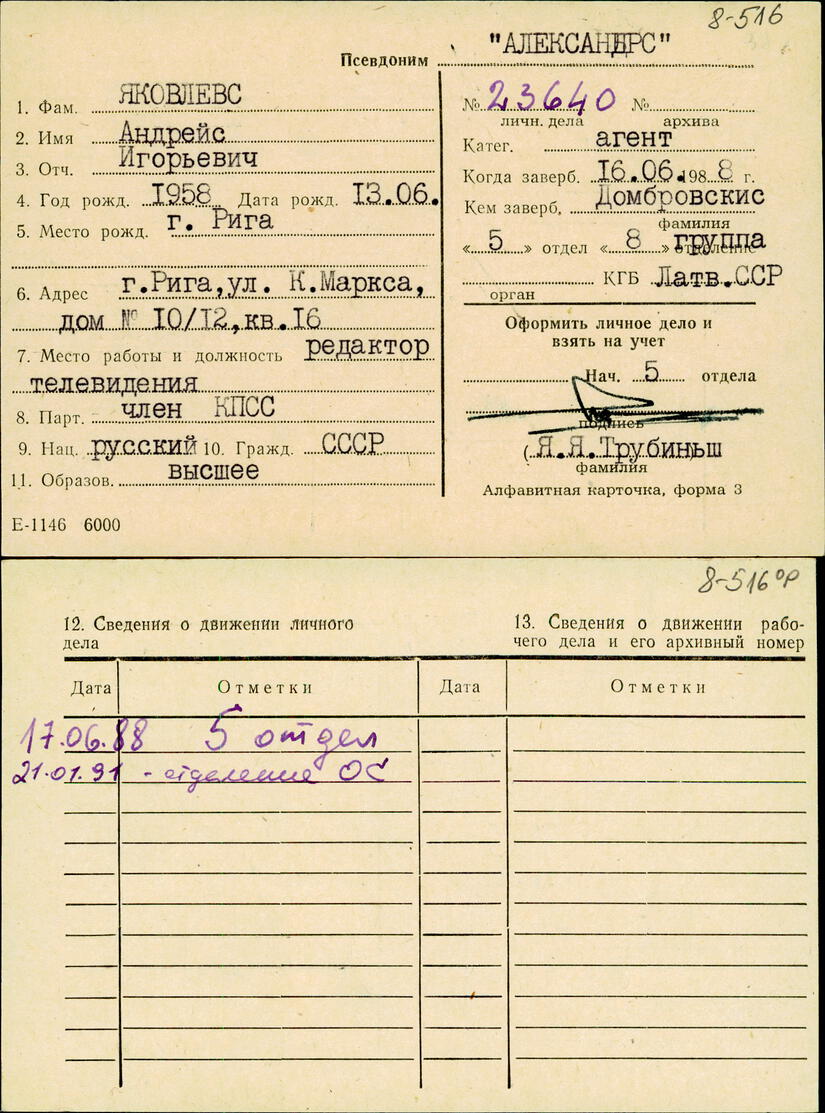 8-516
Псевдоним "АЛЕКСАНДРС"
1. Фам. ЯКОВЛЕВС
2. Имя Андрейс
3. Отч. Игорьевич
4. Год рожд. 1958 Дата рожд. 13.06.
5. Место рожд. г. Рига
6. Адрес г.Рига,ул. К.Маркса,
дом № 10/12,кв.16
7. Место работы и должность редактор
телевидения
8. Парт. член КПСС
9. Нац. русский 10. Гражд. СССР
11. Образов. высшее
Е-1146 6000
№ 23640 №
личн. дела архива
Катег. агент
Когда заверб. 16.06.1988 г.
Кем заверб. Домбровскис
фамилия
« 5 » отдел « 8 » группа
КГБ Латв.ССР
орган
Оформить личное дело и
взять на учет
Нач. 5 отдела
подпись
(Я.Я.Трубиньш
фамилия
Алфавитная карточка, форма 3
8-516 ОР
12. Сведения о движении личного
дела
13. Сведения о движении рабо-
чего дела и его архивный номер
Дата Отметки Дата Отметки
17.06.88 5 отдел
21.01.91 - отделение ОС